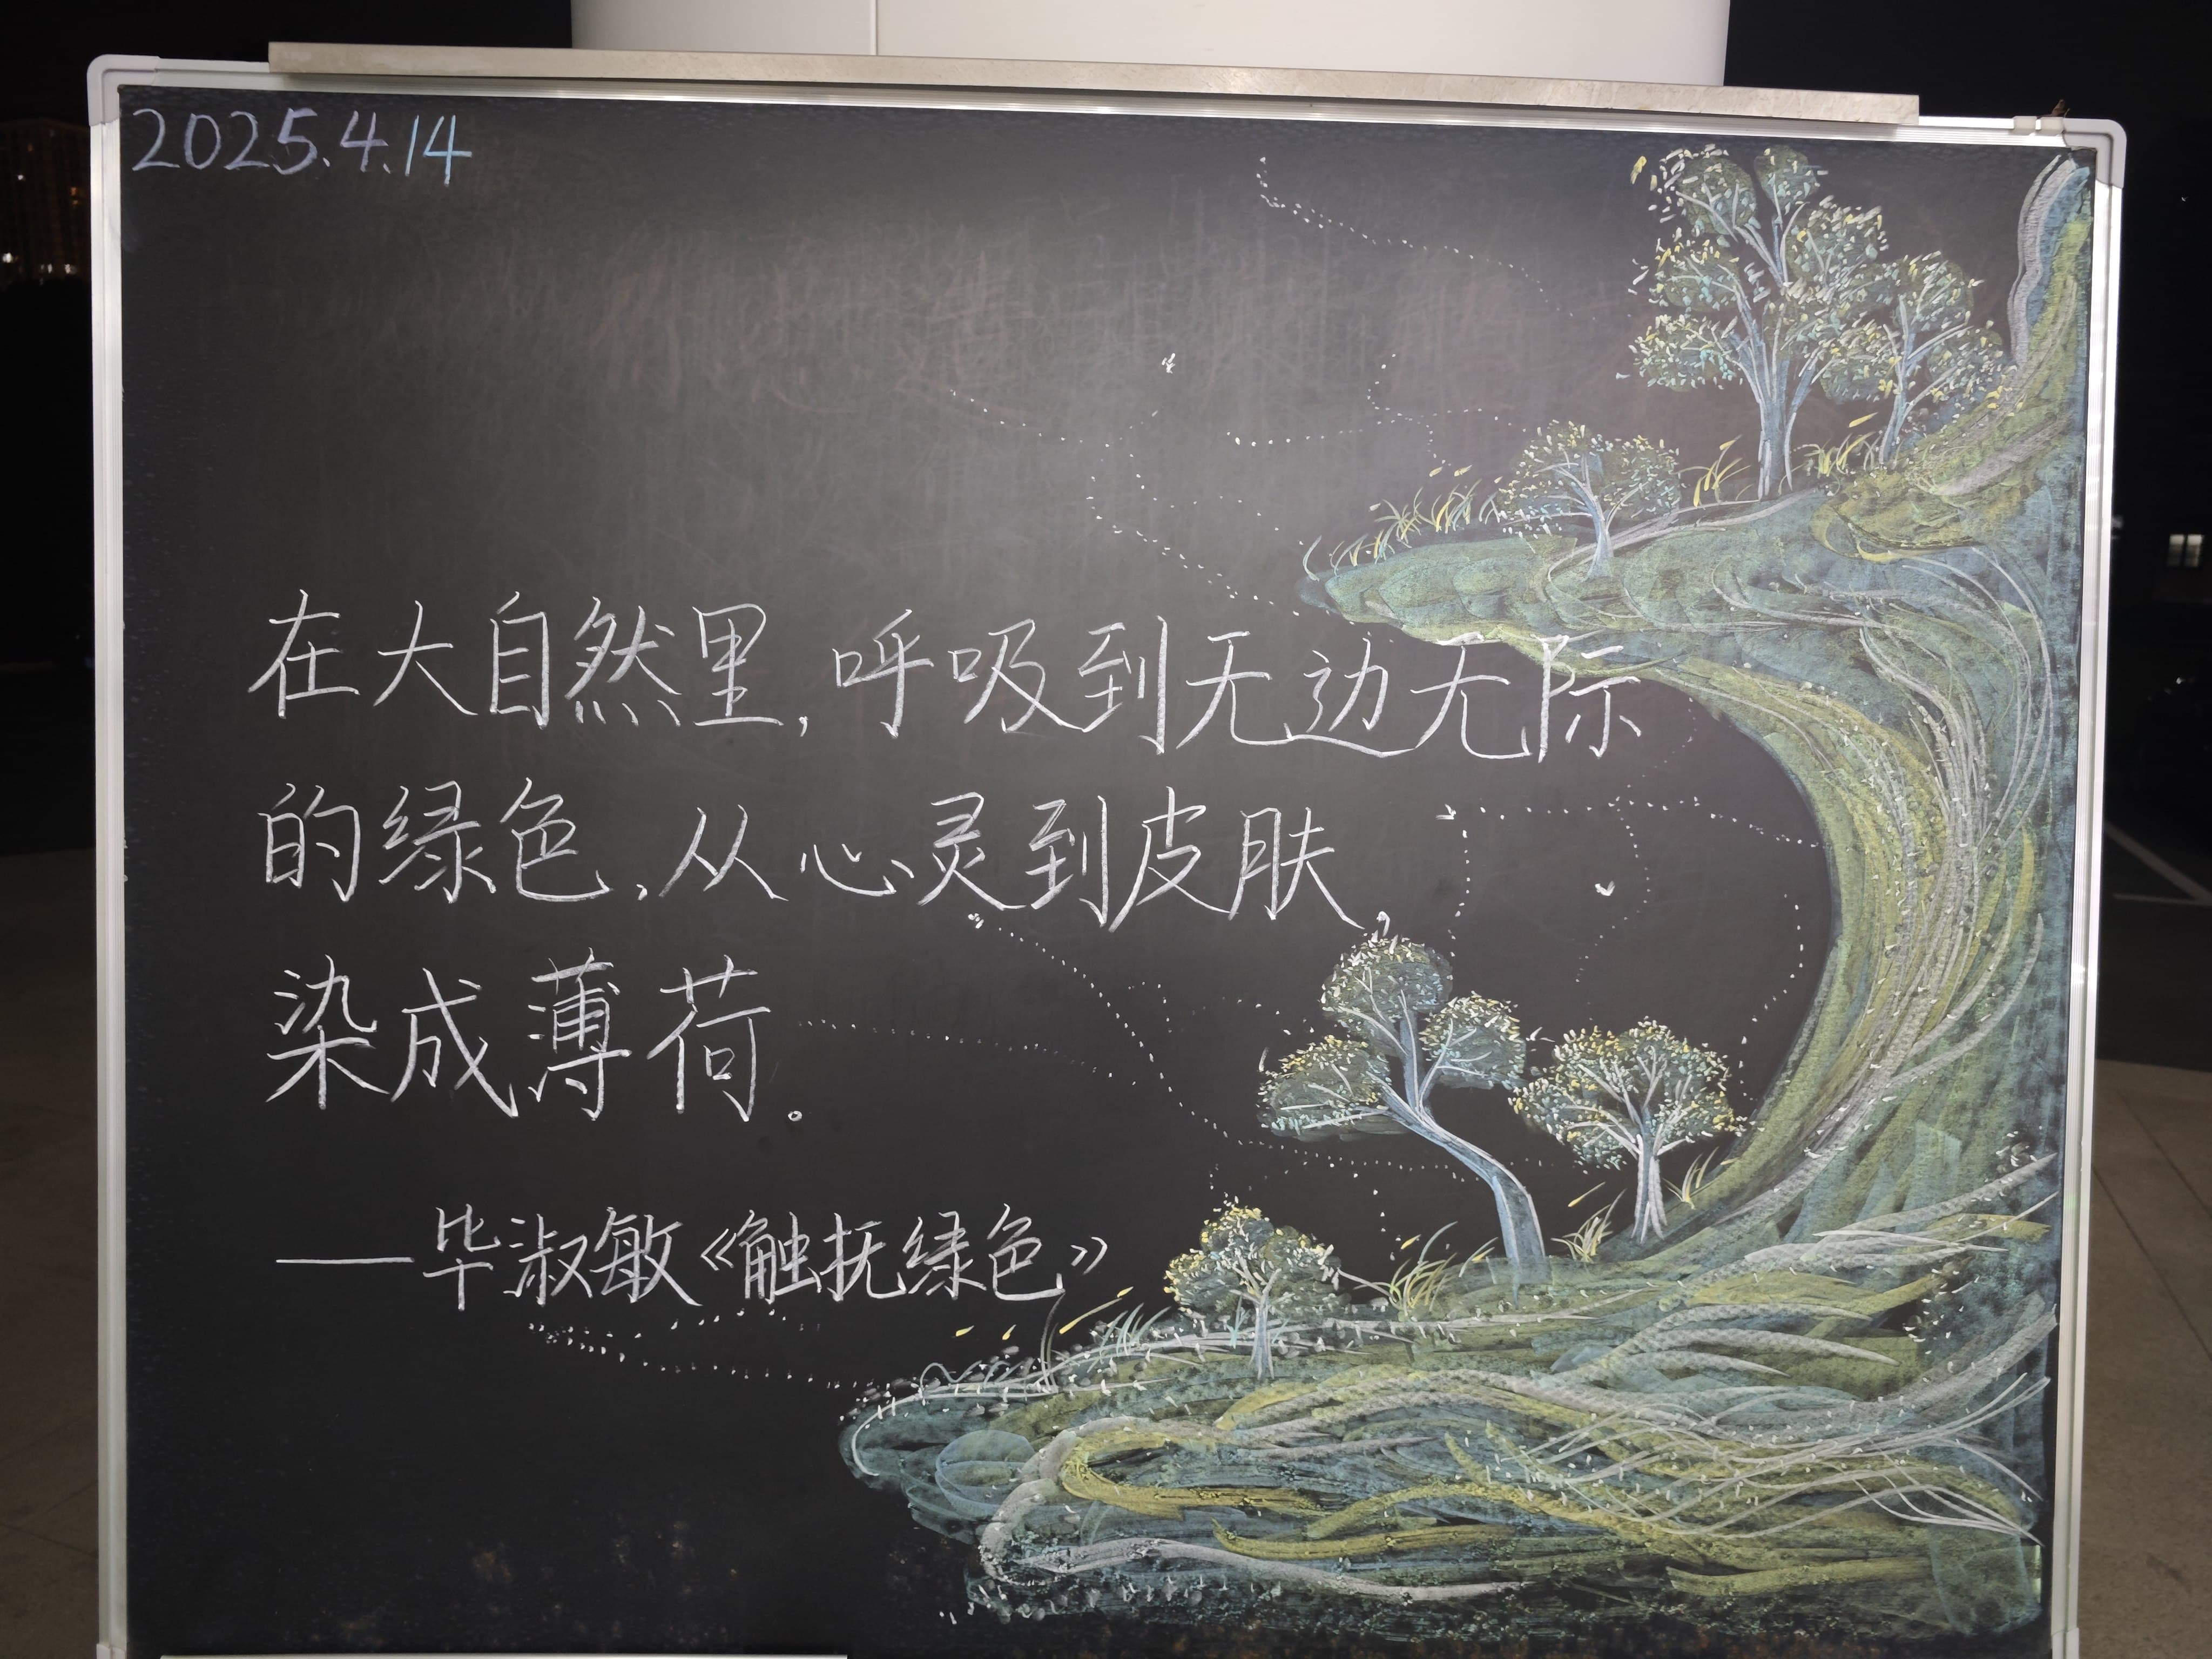 2025.4.14
在大自然里,呼吸到无边无际
的绿色,从心灵到皮肤,
染成薄荷。
——毕淑敏《触抚绿色》